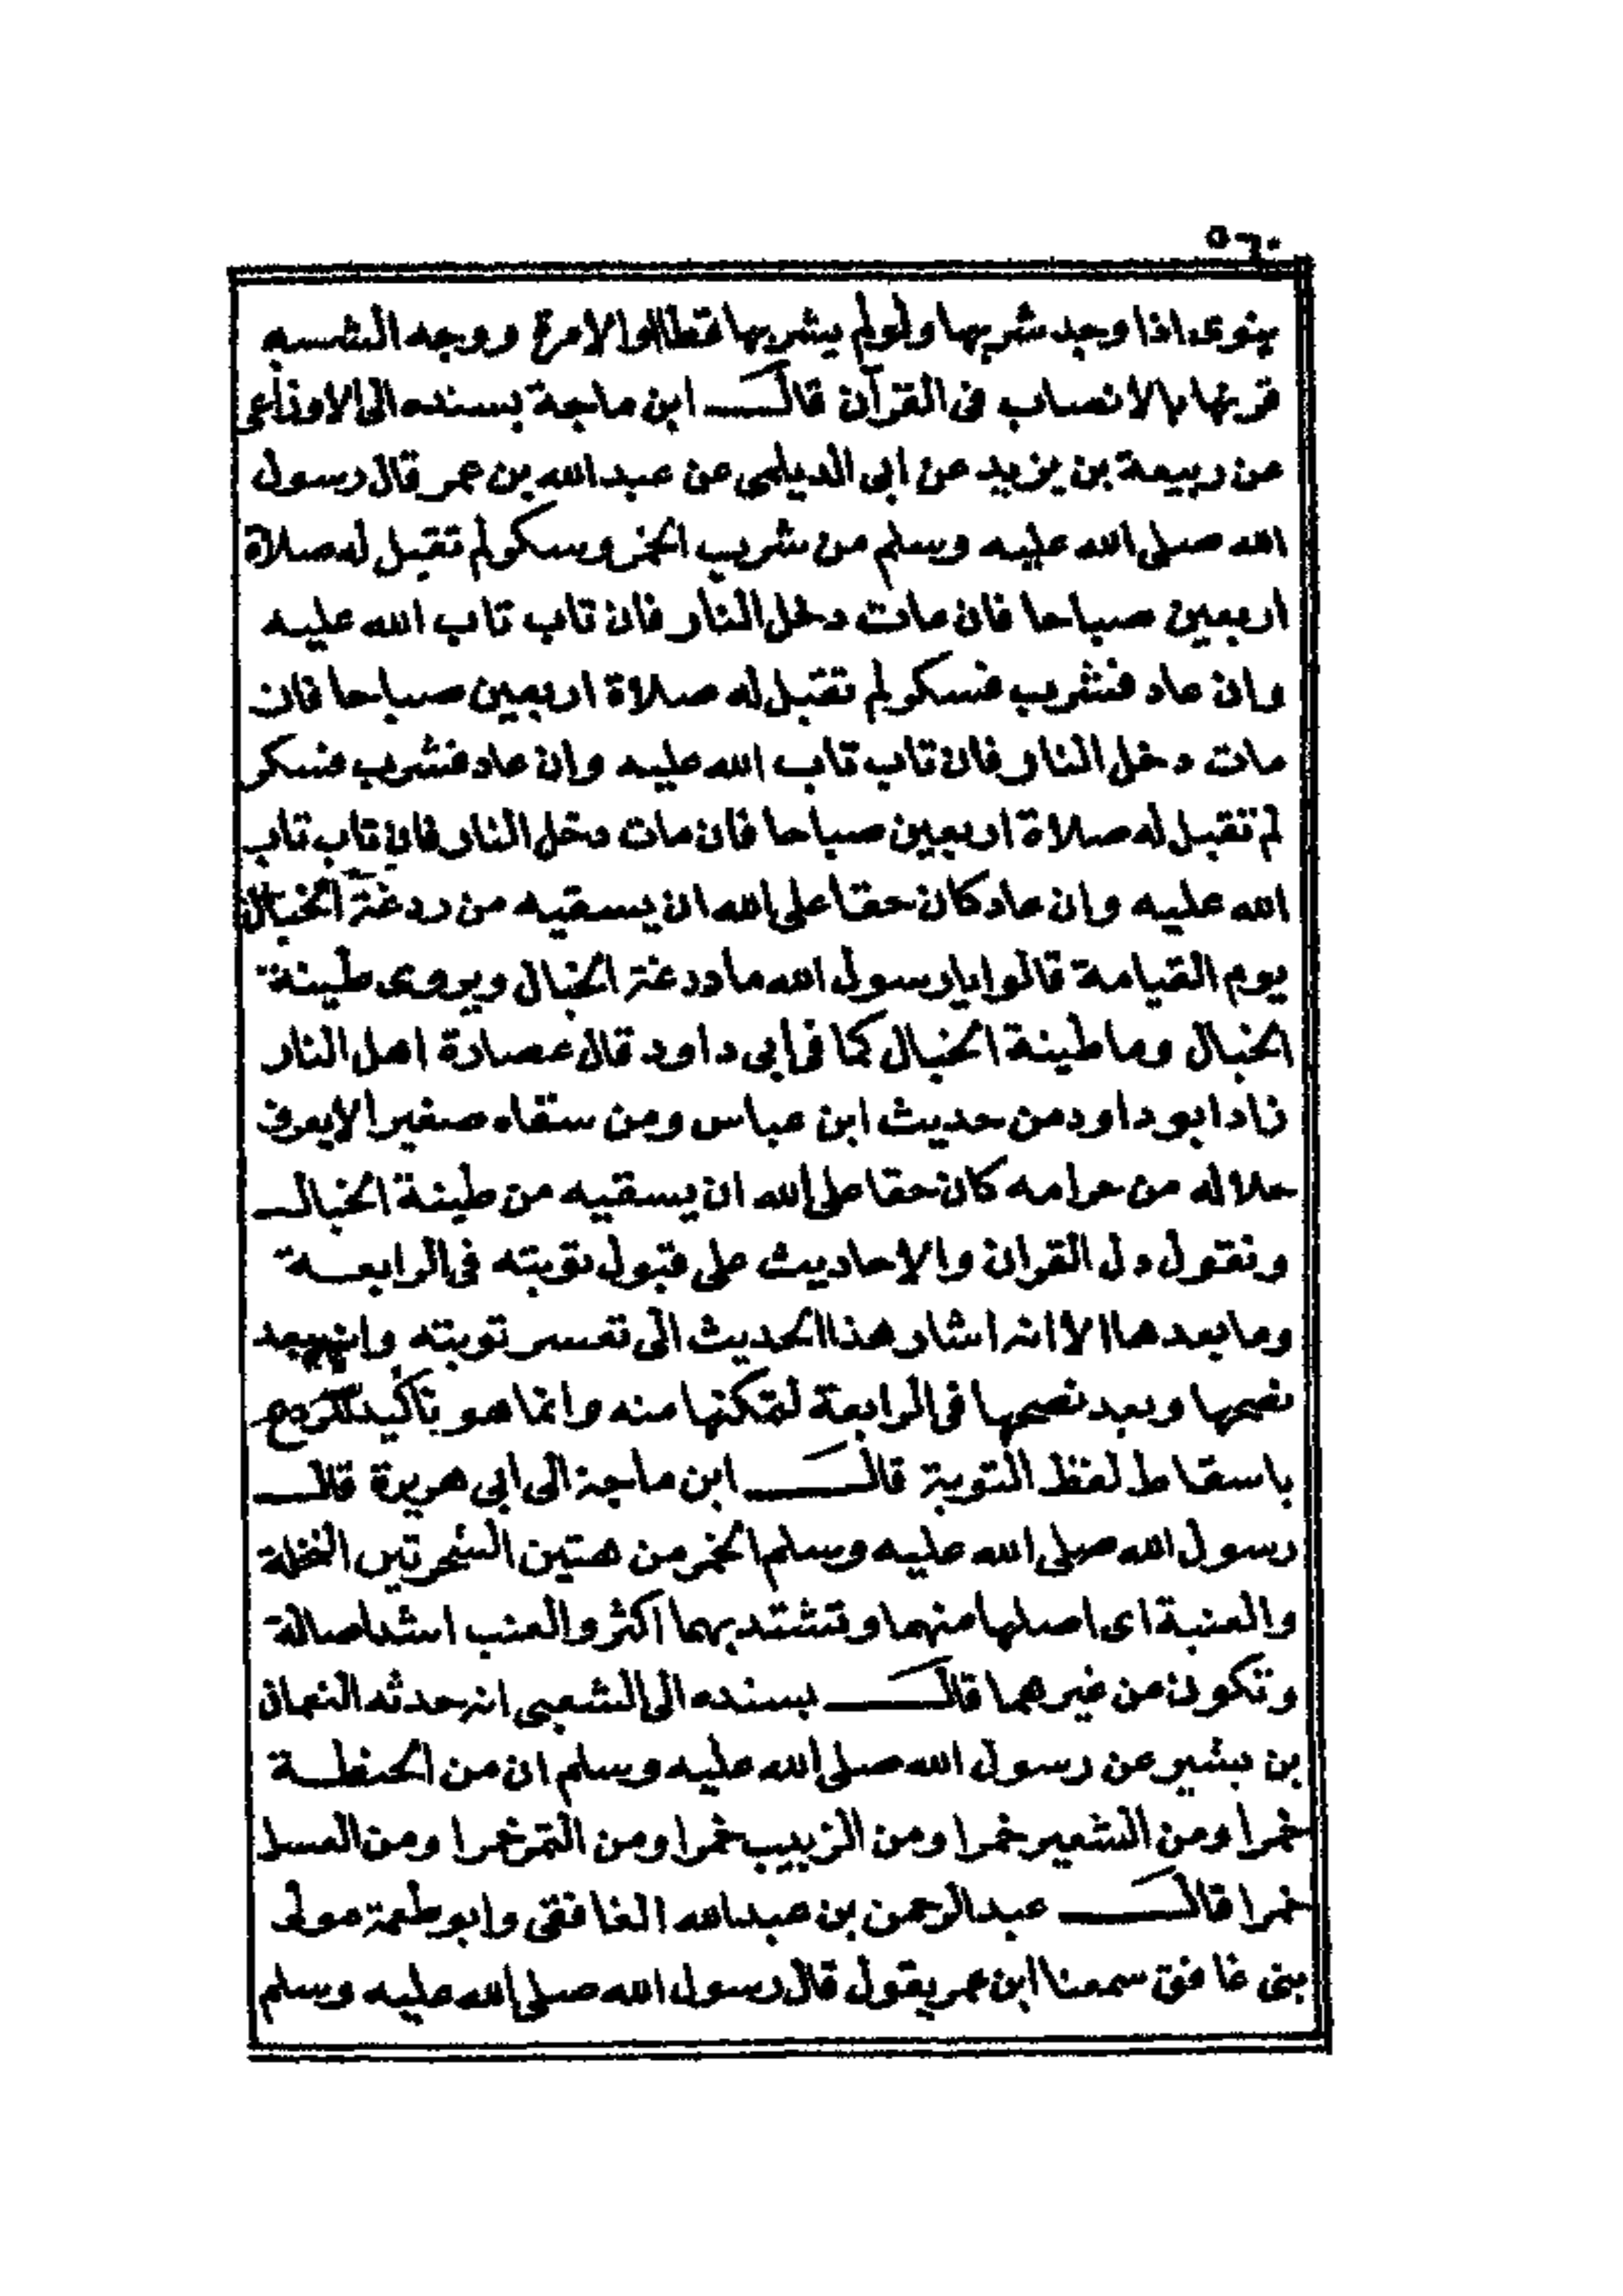 ٥٦٠
ينوى اذا وجد شربها ولو لم يشربها قط او الامرغ ووجه الشبه
قرنها بالانصاب فى القرآن قال ابن ماجة بسنده الى الاوزاعى
عن ربيعة بن يزيد عن ابى الديلمى عن عبد الله بن عمر قال رسول
الله صلى الله عليه وسلم من شرب الخمر وسكر لم تقبل له صلاة
اربعين صباحا فان مات دخل النار فان تاب تاب الله عليه
وان عاد فشرب فسكر لم تقبل له صلاة اربعين صباحا فان
مات دخل النار فان تاب تاب الله عليه وان عاد فشرب فسكر
لم تقبل له صلاة اربعين صباحا فان مات دخل النار فان تاب تاب
الله عليه وان عاد كان حقا على الله ان يسقيه من ردغة الخبال
يوم القيامة قالوا يا رسول الله ما ردغة الخبال ويروى طينة
الخبال وما طينة الخبال كما فى ابى داود قال عصارة اهل النار
زاد ابو داود من حديث ابن عباس ومن سقاه صغيرا لا يعرف
حلاله من حرامه كان حقا على الله ان يسقيه من طينة الخبال
ونقول دل القران والاحاديث على قبول توبته فى الرابعة
وما بعدها الا انه اشار هذا الحديث الى تعسر توبته وانه يبعد
نصحها وبعد نصحها فى الرابعة لتمكنها منه وانما هو تاكيد للردع
باسقاط لفظ التوبة قال ابن ماجة الى ابى هريرة قال
رسول الله صلى الله عليه وسلم الخمر من هتين الشجرتين النخلة
والعنبة اى اصلها منهما وتشتد بهما اكثر والعنب اشد اصالة
وتكون من غيرهما قال بسنده الى الشعبى انه حدثه النعمان
بن بشير عن رسول الله صلى الله عليه وسلم ان من الحنطة
خمرا ومن الشعير خمرا ومن الزبيب خمرا ومن التمر خمرا ومن العسل
خمرا قال عبد الرحمن بن عبد الله الغافقى وابو طعمة مولى
بنى غافق سمعنا ابن عمر يقول قال رسول الله صلى الله عليه وسلم